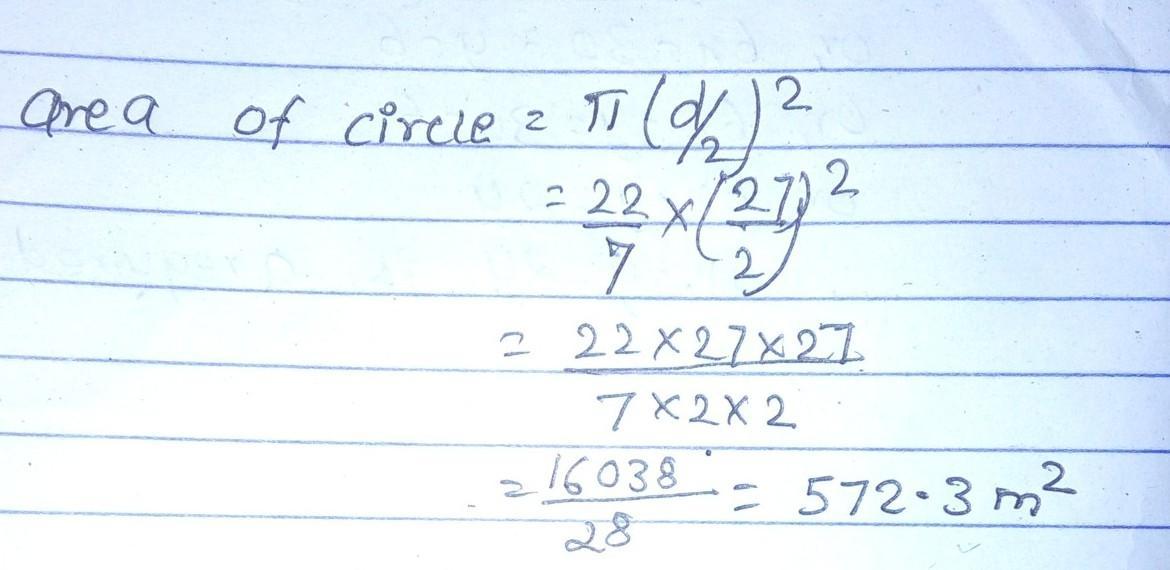 area of circle = π(d/2)²
= 22/7 × (27/2)²
= 22×27×27 / 7×2×2
= 16038/28 = 572.3 m²